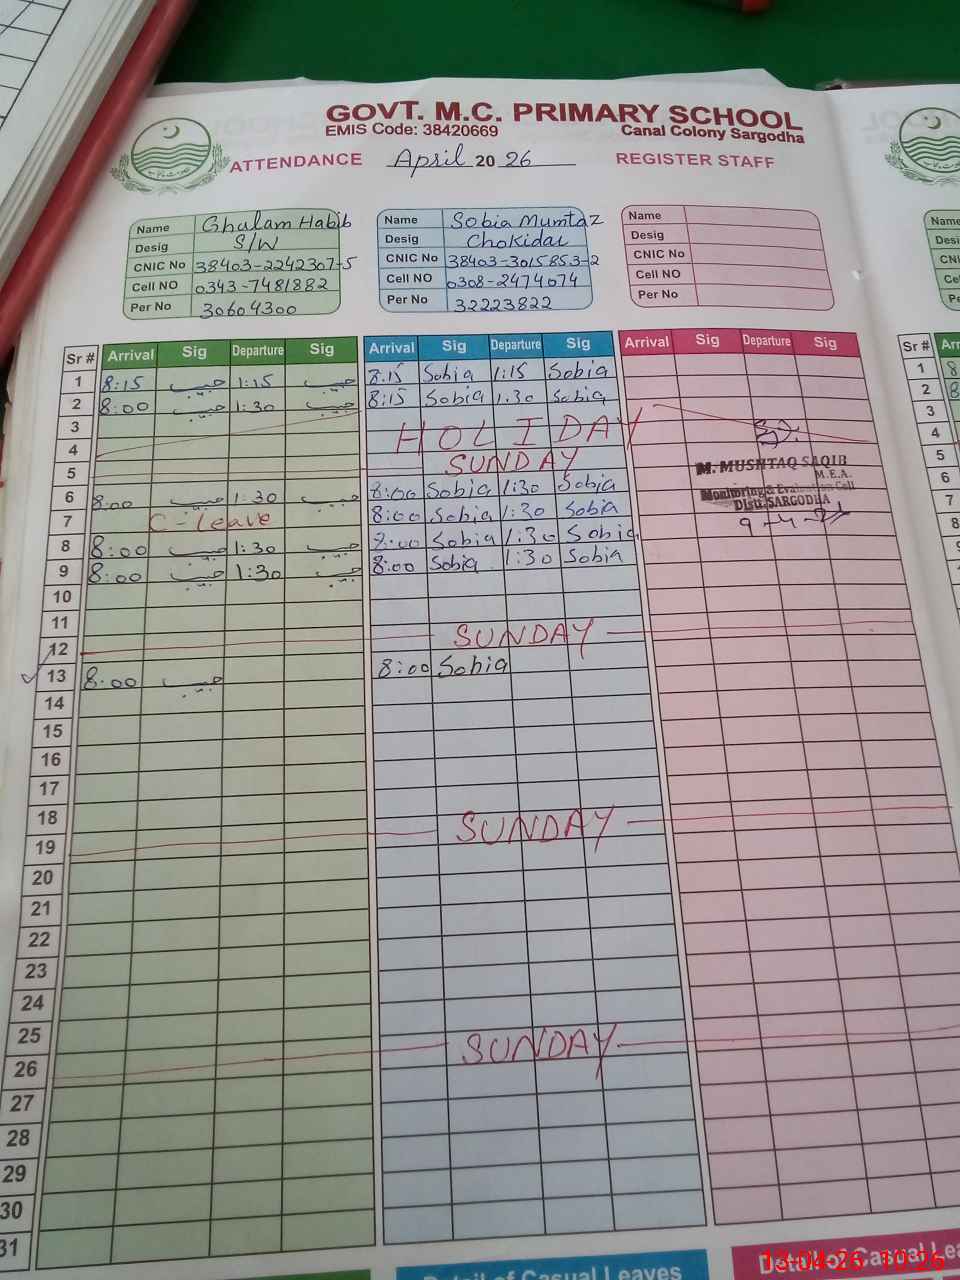 GOVT. M.C. PRIMARY SCHOOL
EMIS Code: 38420669 Canal Colony Sargodha
ATTENDANCE April 2026 REGISTER STAFF
Name Ghulam Habib
Desig S/W
CNIC No 38403-2242307-5
Cell NO 0343-7481882
Per No 30604300
Name Sobia Mumtaz
Desig Chokidar
CNIC No 38403-3015853-2
Cell NO 0308-2474074
Per No 32223822
Name
Desig
CNIC No
Cell NO
Per No
Sr # Arrival Sig Departure Sig Arrival Sig Departure Sig Arrival Sig Departure Sig
1 8:15 حبیب 1:15 حبیب 8:15 Sobia 1:15 Sobia
2 8:00 حبیب 1:30 حبیب 8:15 Sobia 1:30 Sobia
3 HOLIDAY
4
5 SUNDAY
6 8:00 حبیب 1:30 حبیب 8:00 Sobia 1:30 Sobia
7 C-leave 8:00 Sobia 1:30 Sobia
8 8:00 حبیب 1:30 حبیب 8:00 Sobia 1:30 Sobia
9 8:00 حبیب 1:30 حبیب 8:00 Sobia 1:30 Sobia
10
11
12 SUNDAY
13 8:00 حبیب 8:00 Sobia
14
15
16
17
18
19 SUNDAY
20
21
22
23
24
25
26 SUNDAY
27
28
29
30
31
M. MUSHTAQ SAQIB
M.E.A.
Monitoring & Evaluation Cell
Distt: SARGODHA
9-4-26
Detail of Casual Leaves
Detail of Casual Lea
Name
Desi
CNI
Cell
Per
Sr # Arr
1 8
2 8
3
4
5
6
7
8
9
10
11
13-04-26 10:26